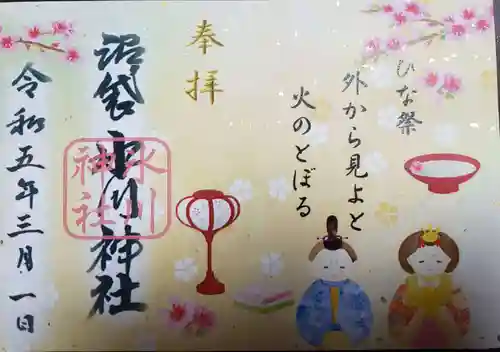 ひな祭
外から見よと
火のとぼる
奉拝
沼袋氷川神社
氷川神社
令和五年三月一日